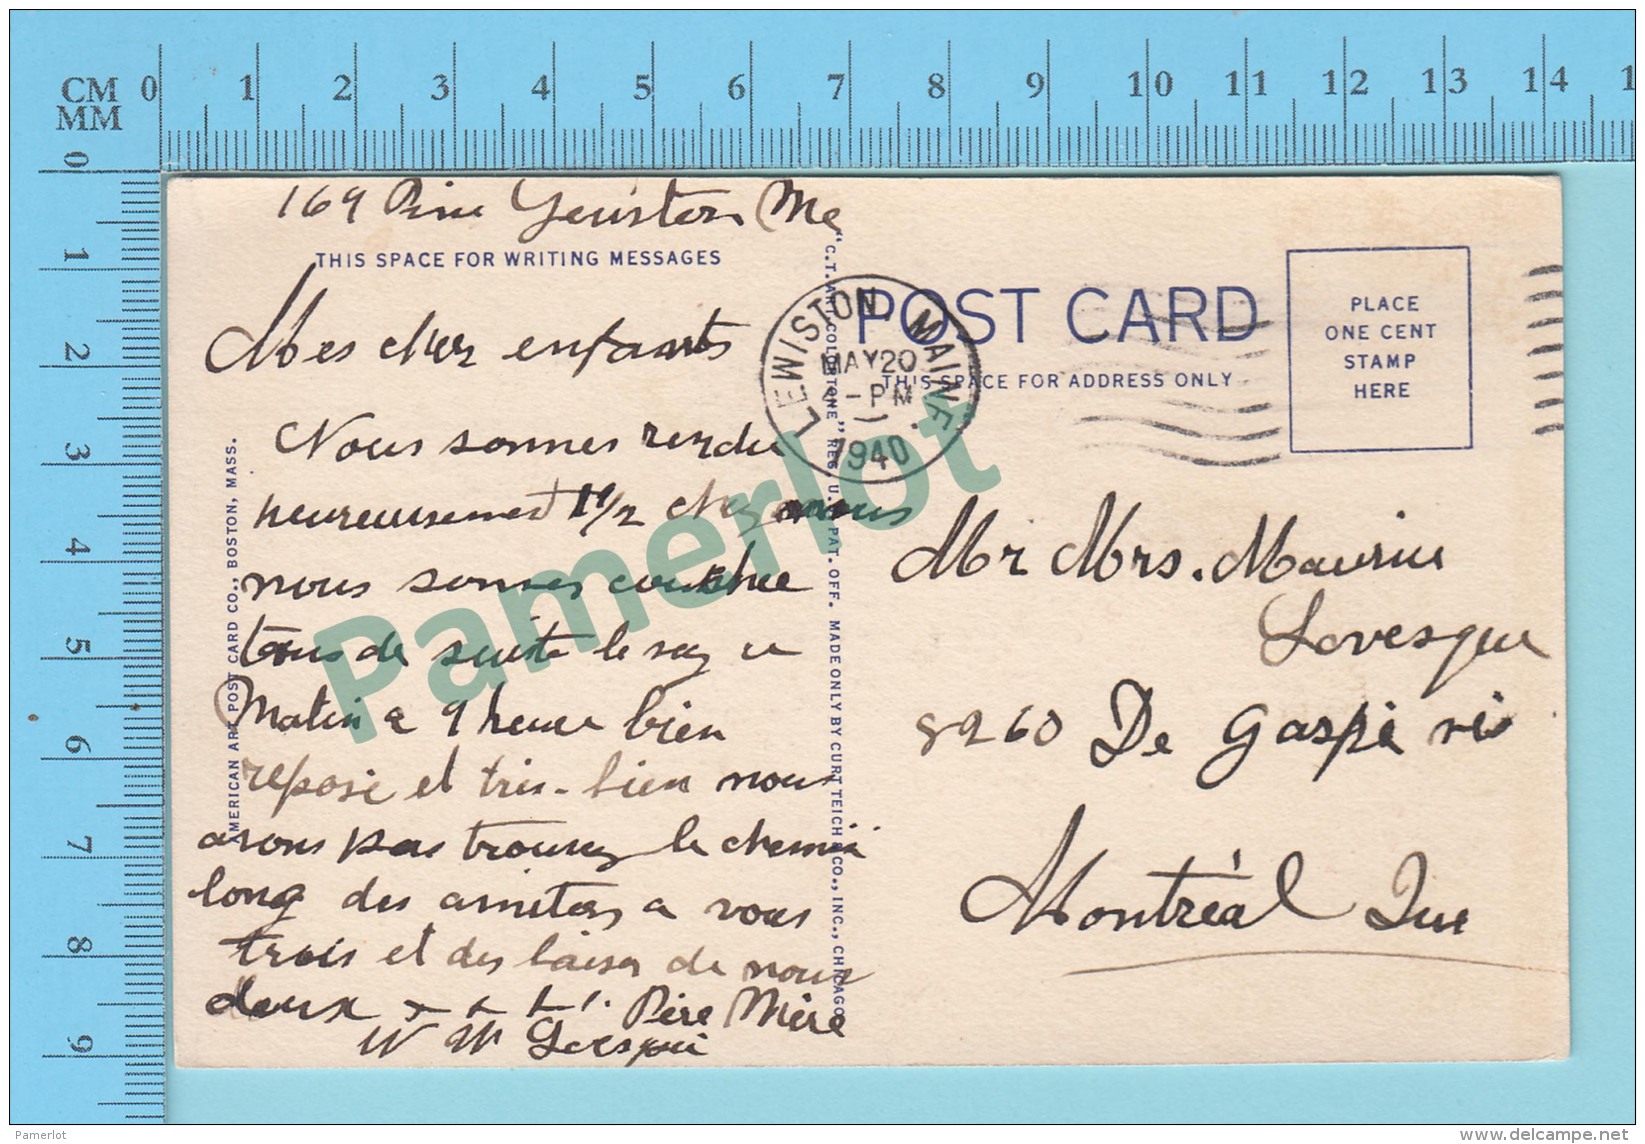 CM 0 1 2 3 4 5 6 7 8 9 10 11 12 13 14 1
MM
0
1
2
3
4
5
6
7
8
9
169 Pine Lewiston Me
THIS SPACE FOR WRITING MESSAGES
Mes cher enfants
Nous sonnes rendu
heureusement 11/2 chez nous
nous sonnes couchee
tous de suite le
Matin a 9 heure bien
repose et tres-bien nous
avons pas trouvez le chemin
long des amities a vous
trois et des baiser de nous
deux x x x x Père Mère
W Levesque
AMERICAN ART POST CARD CO., BOSTON, MASS.
"C.T. ART-COLORTONE" REG. U.S. PAT. OFF. MADE ONLY BY CURT TEICH & CO., INC., CHICAGO
LEWISTON, MAINE.
MAY 20
-PM
1940
POST CARD
THIS SPACE FOR ADDRESS ONLY
PLACE
ONE CENT
STAMP
HERE
Mr Mrs. Maurice
Lovesque
8260 De Gaspé
Montréal Que
Pamerlot
Pamerlot
www.delcampe.net